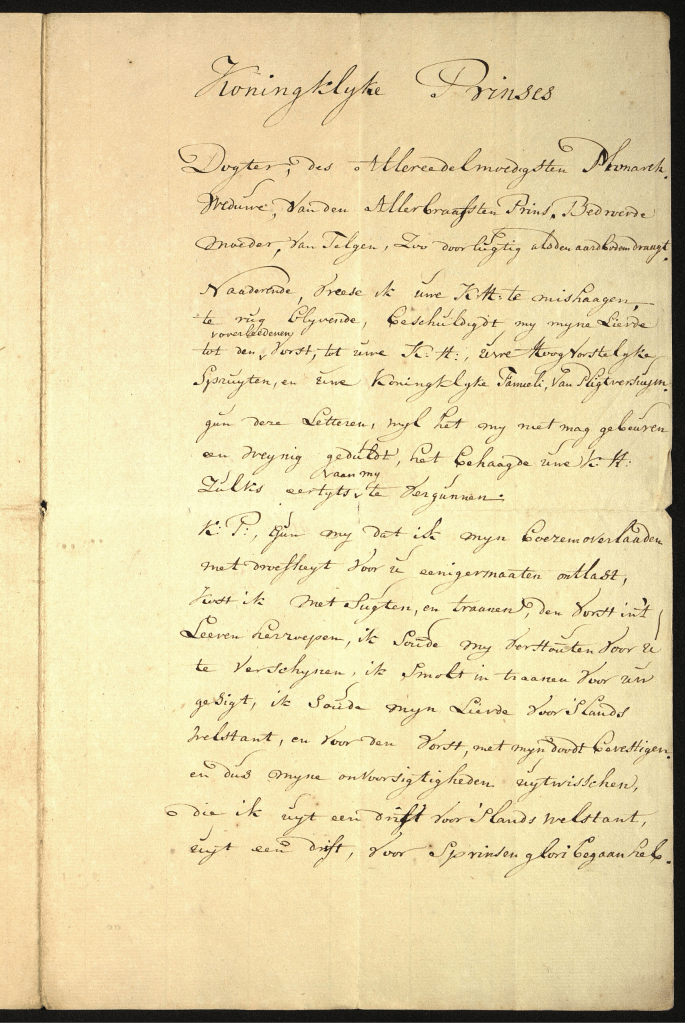 Koningklyke Prinses
Dogter, des Allereedelmoedigsten Monarch.
Weduwe, Van den Allerbraafsten Prins, Bedroevde
Moeder, Van Telgen, Zoo doorlugtig als den aardbodem draagt.
Naaderende, Vreese ik uwe K:H: te mishaagen,
te rug blyvende, beschuldigdt my myne Liefde
overleedenen
tot den Vorst, tot uwe K: H:, uwe Hoog Vorstelyke
Spruyten, en uwe Koningklyke Famieli, Van Pligtversuym.
gun deze Letteren, wyl het my niet mag gebeuren
en weynig geduldt, het behaagde uwe K: H:
Vaan my
Zulks eertyts te Vergunnen.
K: P:, Gun my dat ik myn boezem overlaaden
met droefheyt Voor u eenigermaaten ontlast,
Kost ik met Sugten, en traanen, den Vorst in't
Leeven herroepen, ik Soude my Verstouten Voor u
te Verschynen, ik Smolt in traanen Voor uw
gesigt, ik Soude myn Liefde Voor 'slands
welstant, en Voor den Vorst, met myn doodt bevestigen.
en dus myne onvoorsigtigheden uytwisschen,
die ik uyt een drift Voor 'slands welstant,
uyt een drift, Voor Sprinsen glori begaan heb.